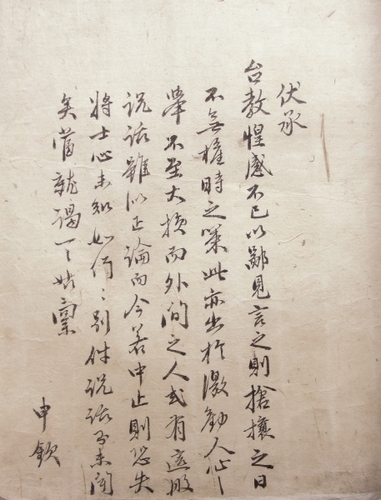 伏承
台教惶感不已以鄙見言之則搶攘之日
不無權時之策此亦出於激勸人心
擧不至大損而外間之人或有這般
說話雖似正論而今若中止則恐失
將士心未知如何〻別件說話多未聞
矣當就謁一〻姑稟
申欽